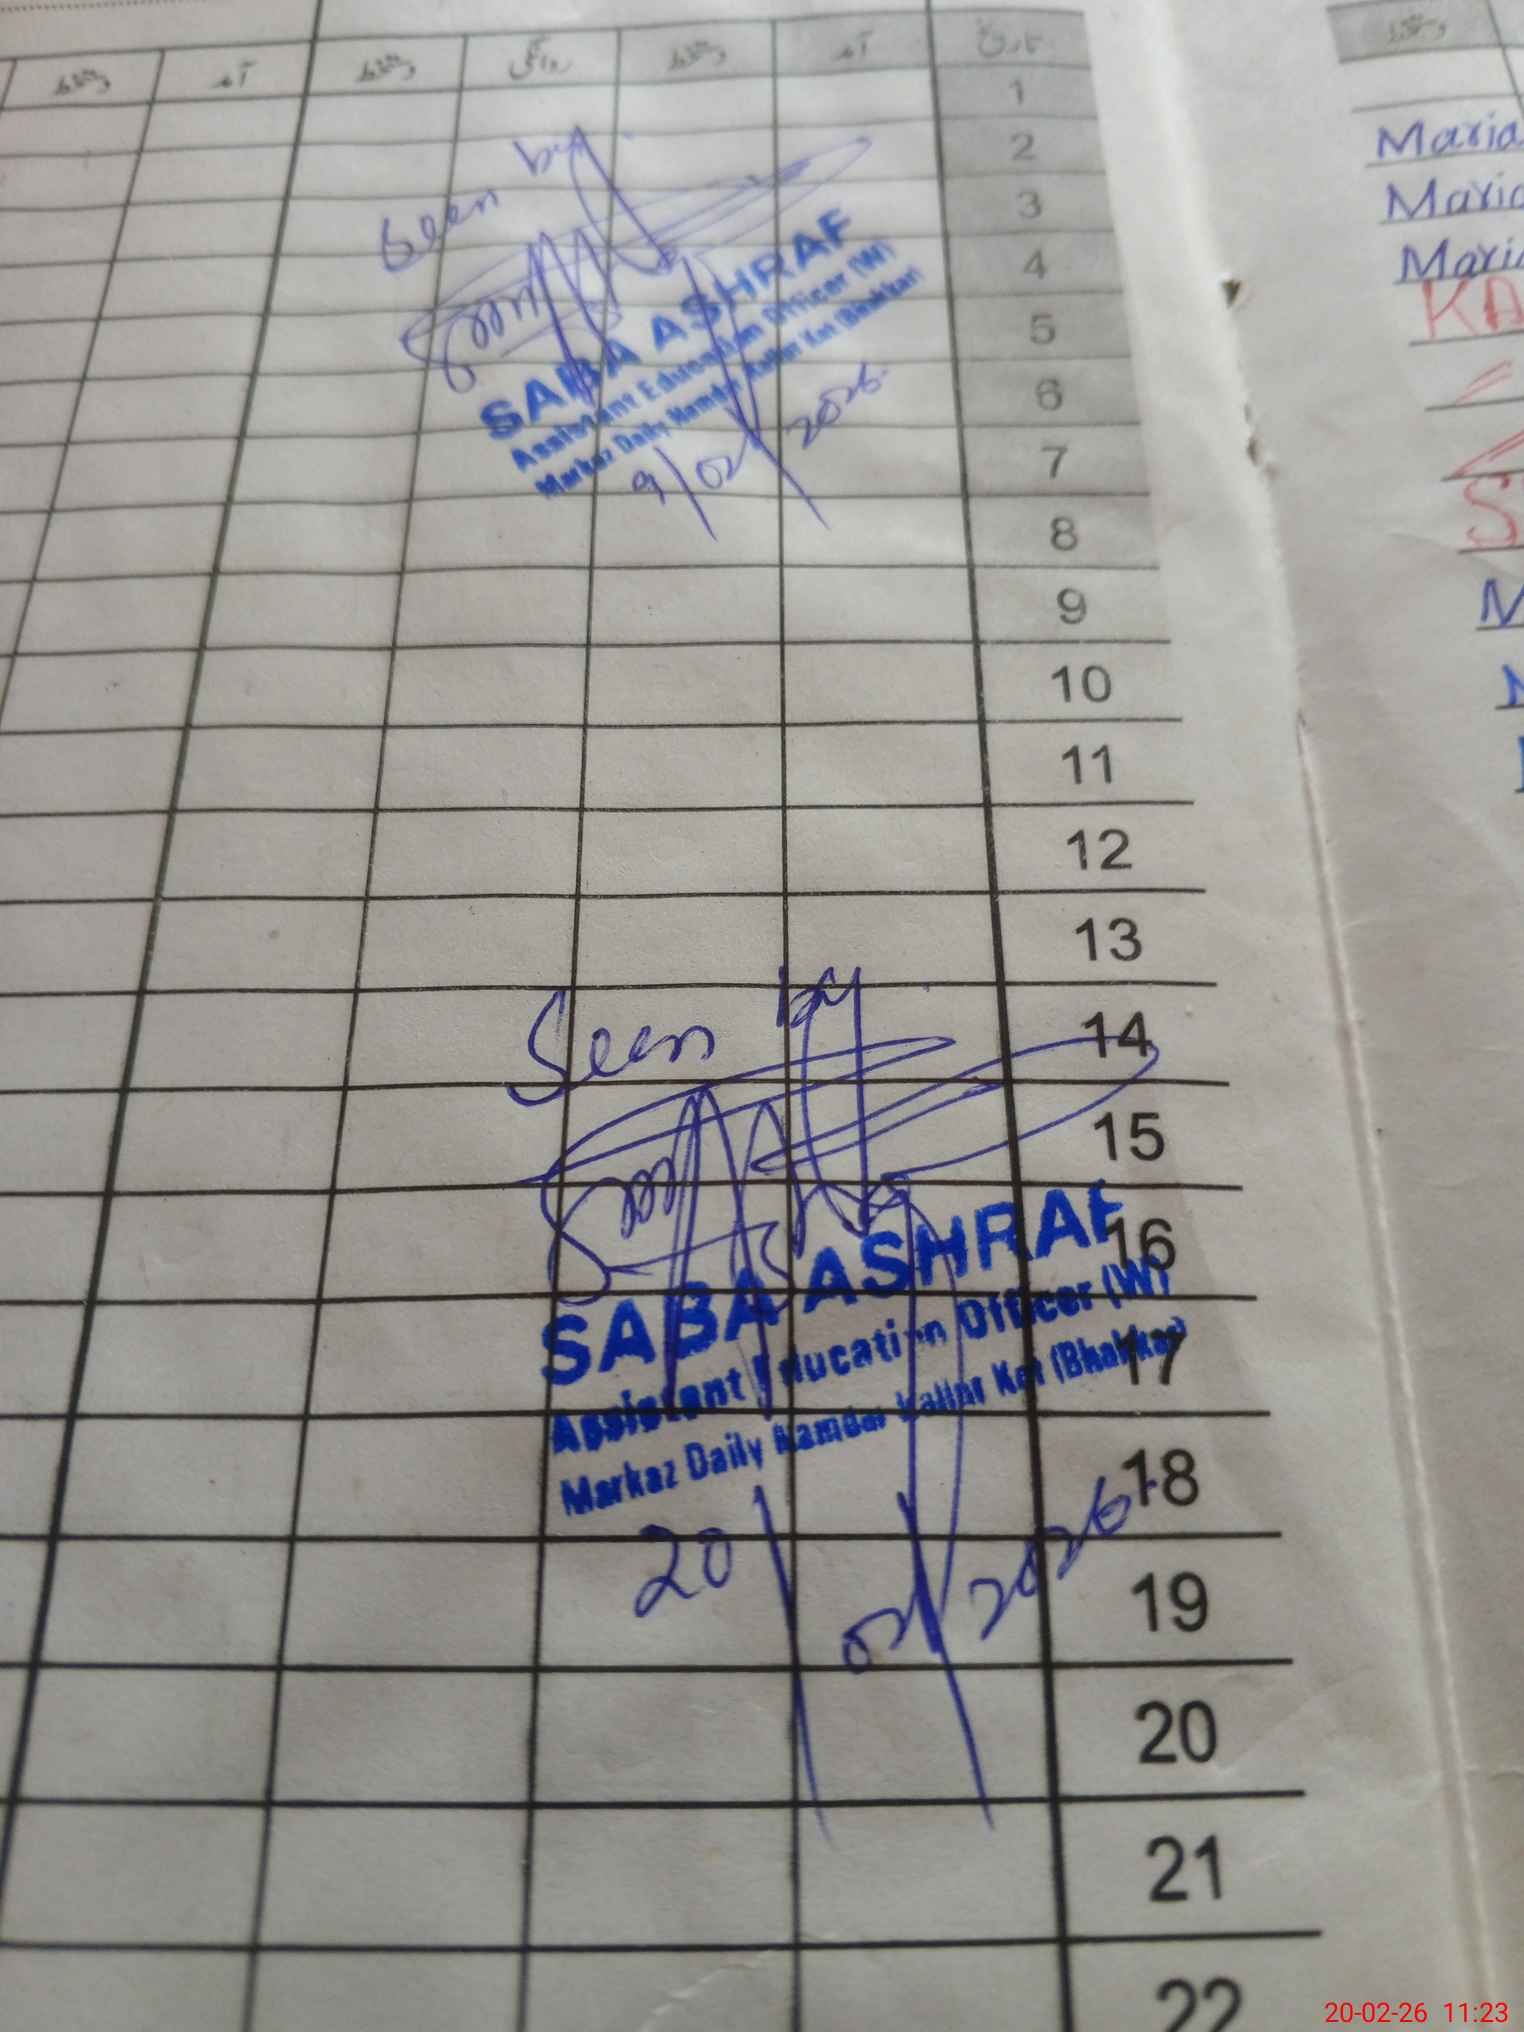 تاریخ آمد دستخط روانگی دستخط آمد دستخط
دستخط
1
2
3
4
5
6
7
8
9
10
11
12
13
14
15
16
17
18
19
20
21
22
Seen by
SABA ASHRAF
Assistant Education Officer (W)
Markaz Daily Namdar Kallur Kot (Bhakkar)
9/02/2026.
Seen by
SABA ASHRAF
Assistant Education Officer (W)
Markaz Daily Namdar Kallur Kot (Bhakkar)
20/02/2026.
Maria
Maria
Maria
20-02-26 11:23